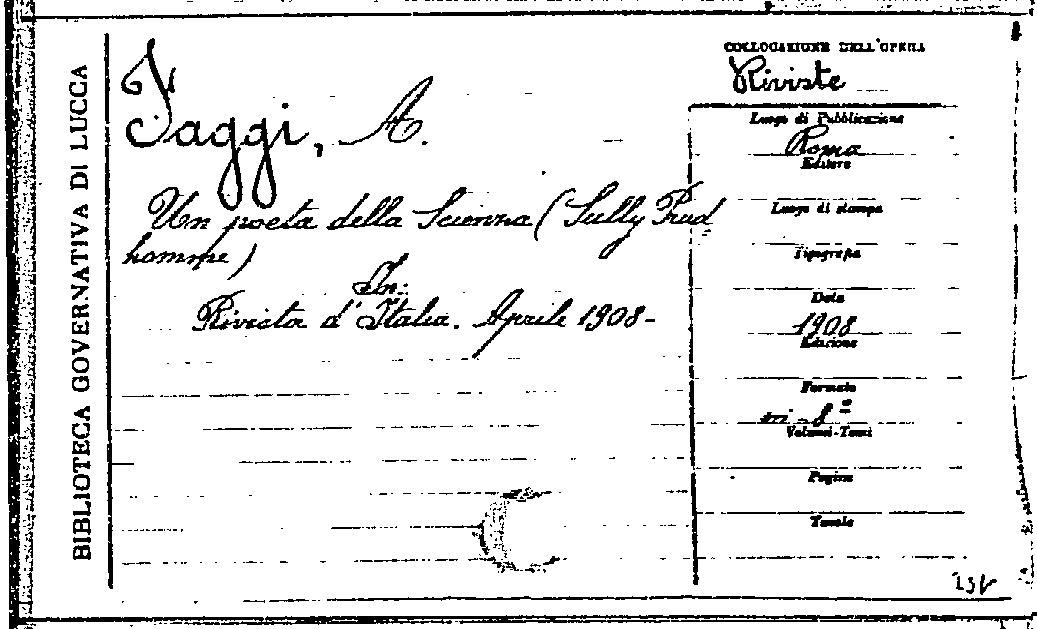 BIBLIOTECA GOVERNATIVA DI LUCCA
Faggi, A.
Un poeta della Scienza (Sully Prud
homme)
In:
Rivista d'Italia. Aprile 1908-
COLLOCAZIONE DELL'OPERA
Riviste
Luogo di Pubblicazione
Roma
Editore
Luogo di stampa
Tipografia
Data
1908
Edizione
Formato
in-8º
Volumi-Tomi
Pagine
Tavole